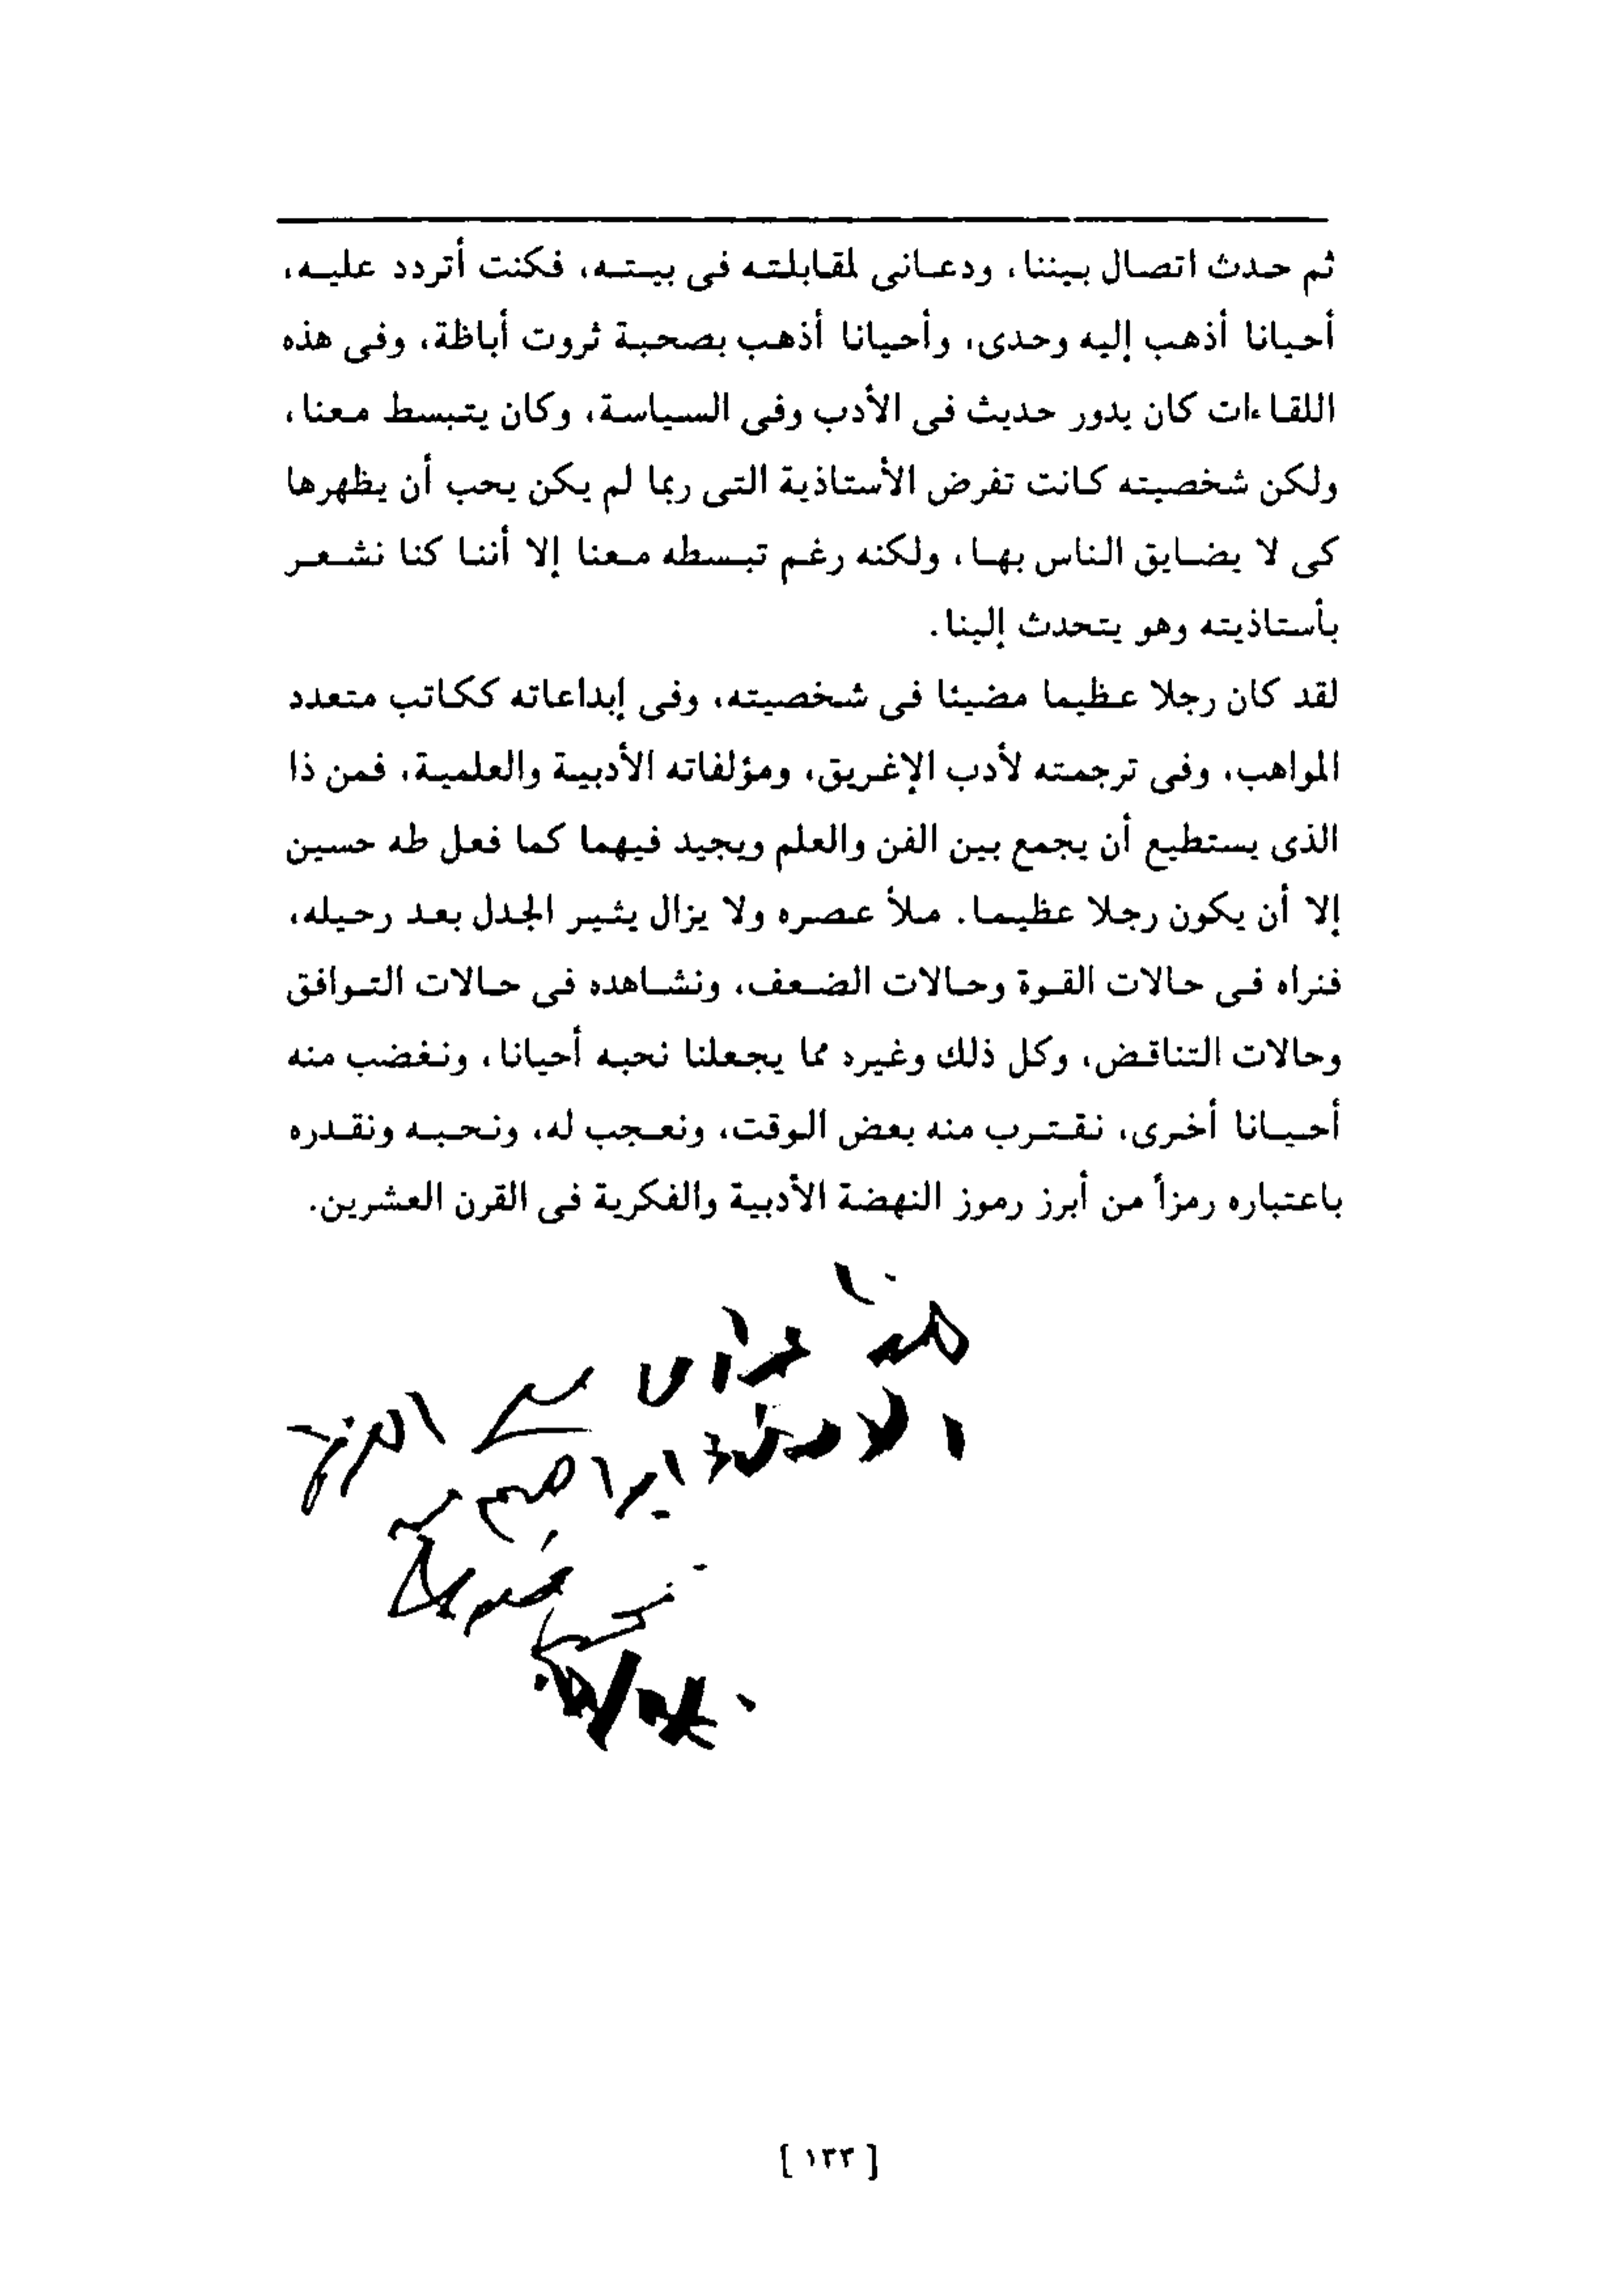 ثم حدث اتصال بيننا، ودعانى لمقابلته فى بيته، فكنت أتردد عليه،
أحيانا أذهب إليه وحدى، وأحيانا أذهب بصحبة ثروت أباظة، وفى هذه
اللقاءات كان يدور حديث فى الأدب وفى السياسة، وكان يتبسط معنا،
ولكن شخصيته كانت تفرض الأستاذية التى ربما لم يكن يحب أن يظهرها
كى لا يضايق الناس بها، ولكنه رغم تبسطه معنا إلا أننا كنا نشعر
بأستاذيته وهو يتحدث إلينا.
لقد كان رجلا عظيما مضيئا فى شخصيته، وفى إبداعاته ككاتب متعدد
المواهب، وفى ترجمته لأدب الإغريق، ومؤلفاته الأدبية والعلمية، فمن ذا
الذى يستطيع أن يجمع بين الفن والعلم ويجيد فيهما كما فعل طه حسين
إلا أن يكون رجلا عظيما. ملأ عصره ولا يزال يثير الجدل بعد رحيله،
فنراه فى حالات القوة وحالات الضعف، ونشاهده فى حالات التوافق
وحالات التناقض، وكل ذلك وغيره مما يجعلنا نحبه أحيانا، ونغضب منه
أحيانا أخرى، نقترب منه بعض الوقت، ونعجب له، ونحبه ونقدره
باعتباره رمزاً من أبرز رموز النهضة الأدبية والفكرية فى القرن العشرين.
هذا
الأستاذ ابراهيم
[ ١٣٣ ]